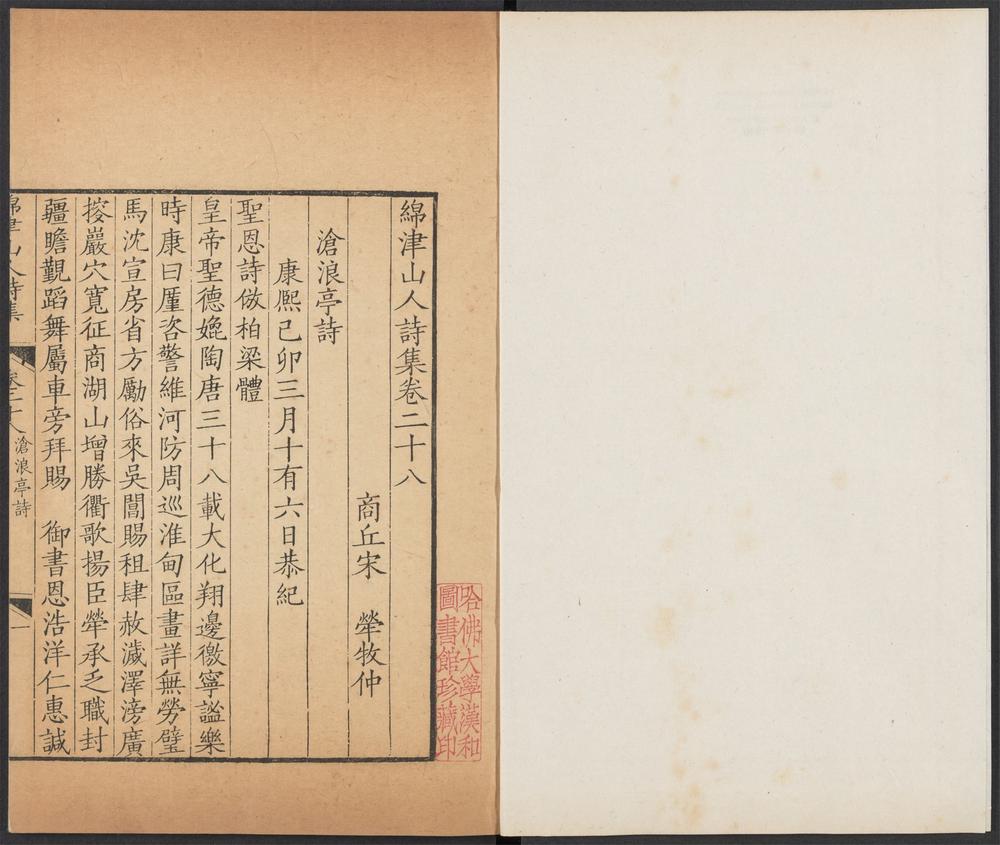 綿津山人詩集卷二十八
商丘宋　犖牧仲
滄浪亭詩
康熙己卯三月十有六日恭紀
聖恩詩倣柏梁體
皇帝聖德媲陶唐三十八載大化翔邊徼寧謐樂
時康曰厪咨警維河防周巡淮甸區畫詳無勞璧
馬沈宣房省方勵俗來吳閶賜租肆赦濊澤滂廣
搜巖穴寬征商湖山增勝衢歌揚臣犖承乏職封
疆瞻覲蹈舞屬車旁拜賜　御書恩浩洋仁惠誠
綿津山人詩集
卷二十八
滄浪亭詩
一
哈佛大學漢和
圖書館珍藏印